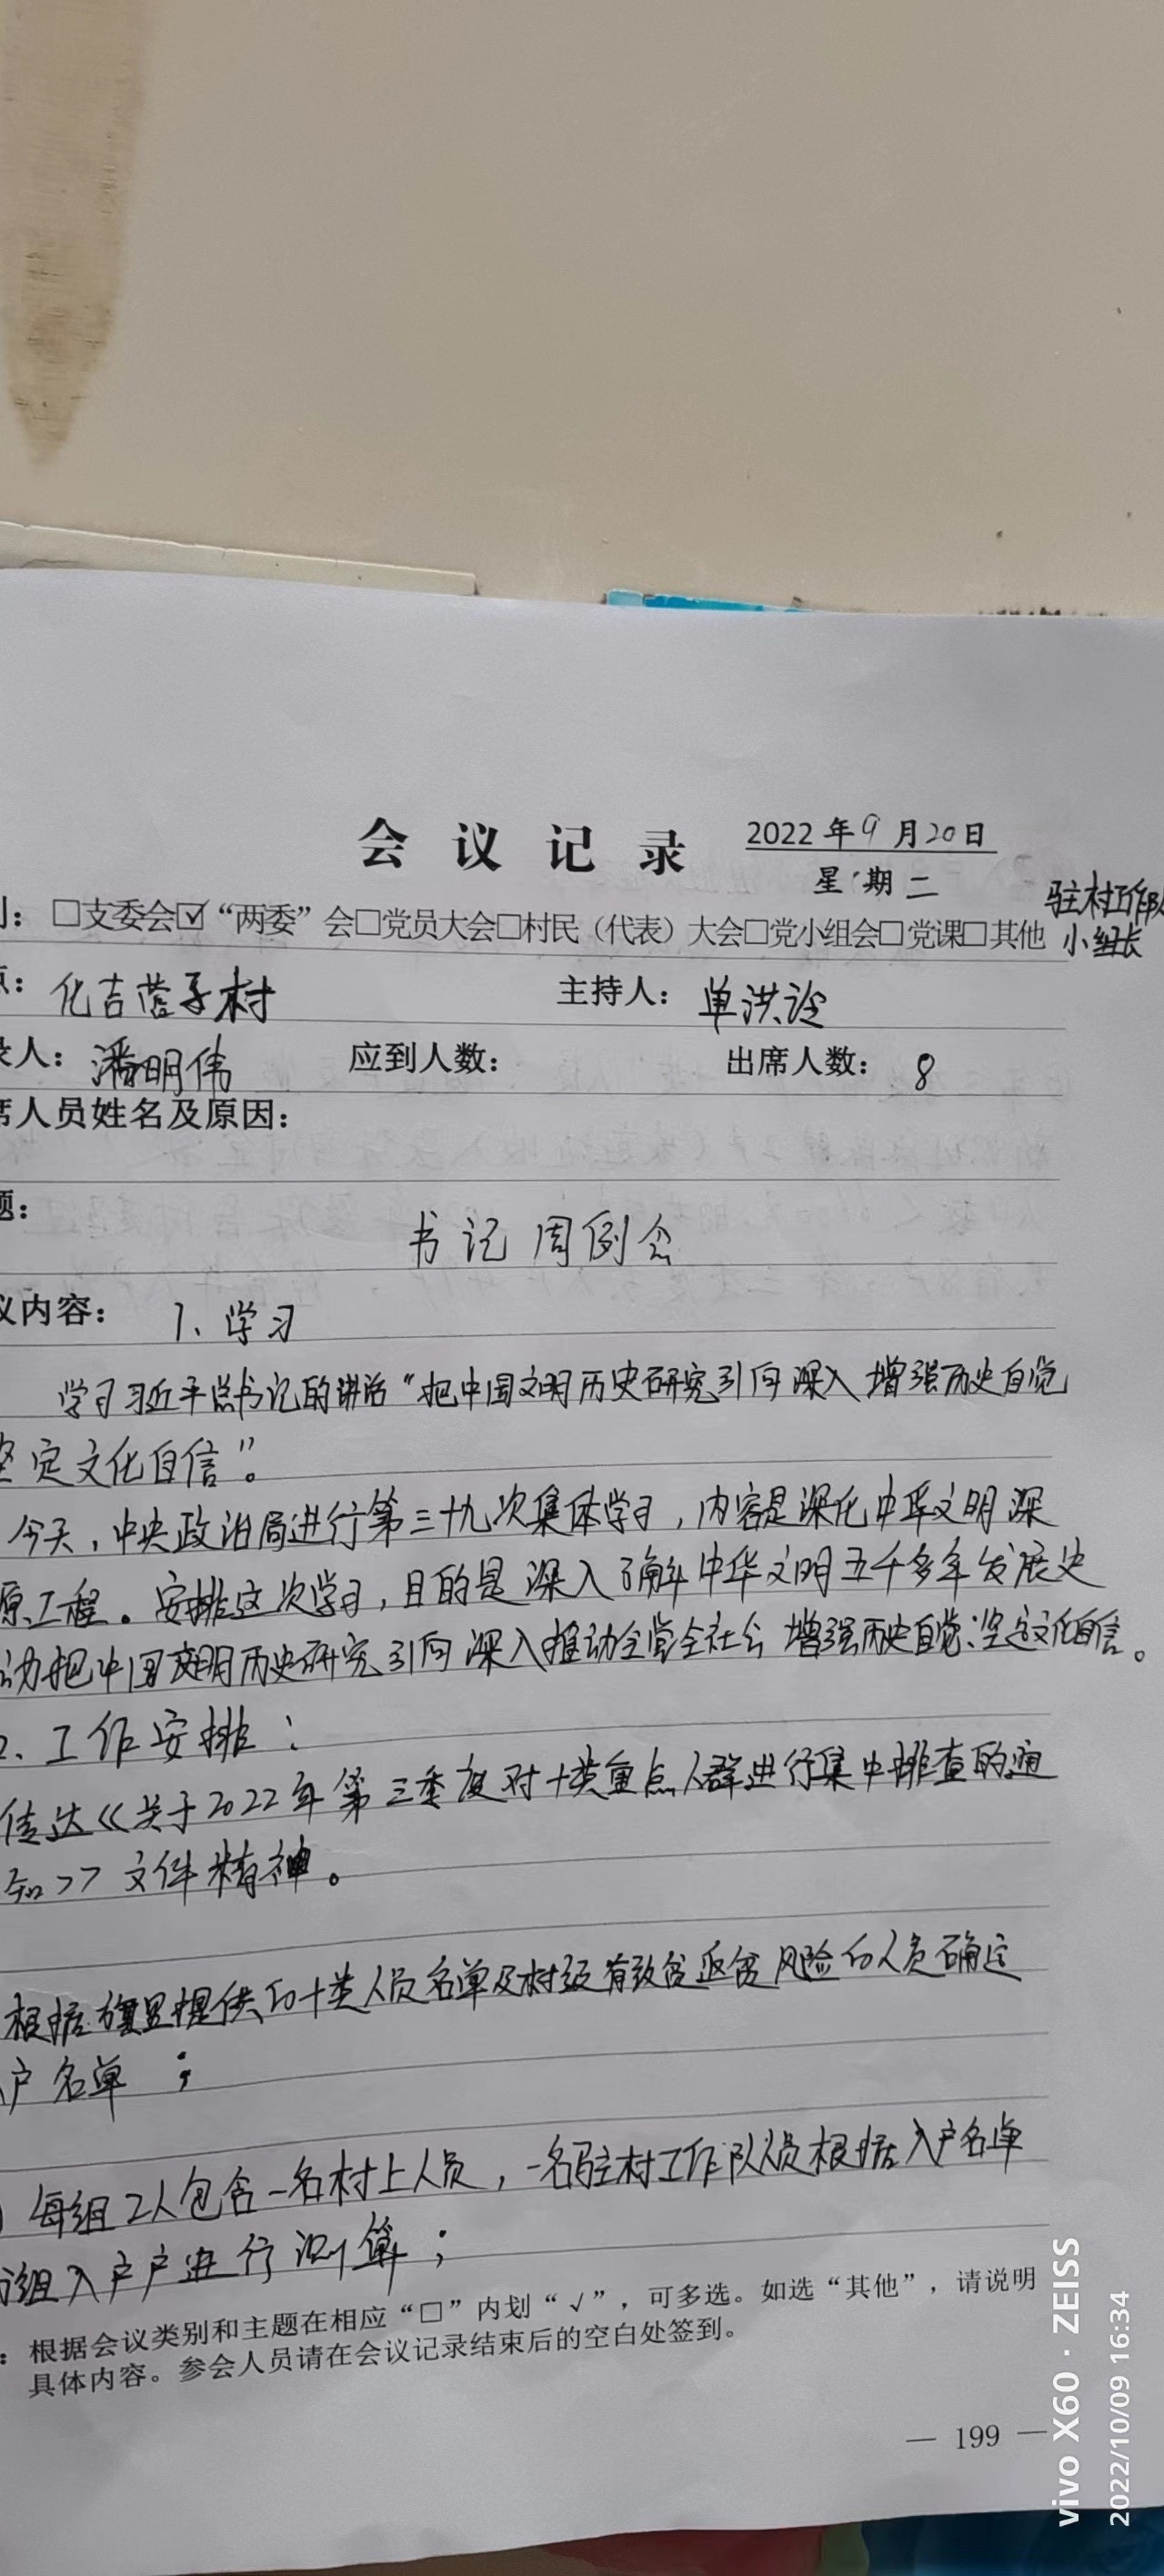 会议记录 2022年9月20日
星期二
：□支委会☑“两委”会□党员大会□村民（代表）大会□党小组会□党课□其他 驻村工作队
小组长
：化吉营子村 主持人：单洪
人：潘明伟 应到人数： 出席人数：8
席人员姓名及原因：
题：
书记周例会
议内容：1、学习
学习习近平总书记的讲话“把中国文明历史研究引向深入增强历史自觉
坚定文化自信”。
今天，中央政治局进行第三十九次集体学习，内容是深化中华文明深
原工程。安排这次学习，目的是深入了解中华文明五千多年发展史
动把中国文明历史研究引向深入推动全党全社会增强历史自觉、坚定文化自信。
2、工作安排：
传达《关于2022年第三季度对十类重点人群进行集中排查的通
知》文件精神。
根据旗县提供的十类人员名单及村级有致贫返贫风险的人员确定
户名单；
每组2人包含一名村上人员，一名驻村工作队队员根据入户名单
组入户户进行测算；
：根据会议类别和主题在相应“□”内划“√”，可多选。如选“其他”，请说明
具体内容。参会人员请在会议记录结束后的空白处签到。
— 199 —
vivo X60 · ZEISS
2022/10/09 16:34